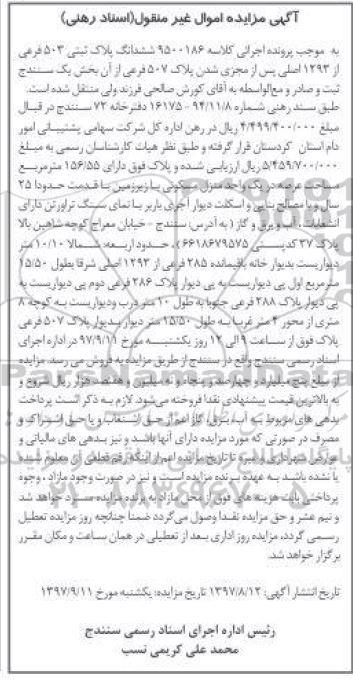 آگهی مزایده اموال غیر منقول(اسناد رهنی)
به موجب پرونده اجرائی کلاسه ۹۵۰۰۱۸۶ ششدانگ پلاک ثبتی ۵۰۳ فرعی
از ۱۲۹۳ اصلی پس از مجزی شدن پلاک ۵۰۷ فرعی از آن بخش یک سنندج
ثبت و صادر و مع‌الواسطه به آقای کورش صالحی فرزند ولی منتقل شده است.
طبق سند رهنی شماره ۹۴/۱۱/۸ – ۱۶۱۷۵ دفترخانه ۷۲ سنندج در قبال
مبلغ ۴/۴۹۹/۴۰۰/۰۰۰ ریال در رهن اداره کل شرکت سهامی پشتیبانی امور
دام استان کردستان قرار گرفته و طبق نظر هیات کارشناسان رسمی به مبلغ
۵/۴۵۹/۷۰۰/۰۰۰ ریال ارزیابی شده و پلاک فوق دارای ۱۵۶/۵۵ مترمربع
مساحت عرصه در یک واحد منزل مسکونی با زیرزمین با قدمت حدودا ۲۵
سال و با مصالح بنایی و اسکلت دیوار آجری باربر با نمای سنگ تراورتن دارای
انشعابات، آب و برق و گاز ( به آدرس: سنندج – خیابان معراج کوچه شاهین بالا
پلاک ۳۷ کدپستی ۶۶۱۸۶۷۹۵۷۵) ، حدود اربعه: شمالا ۱۰/۱۰ متر
دیواریست بدیوار خانه باقیمانده ۲۸۵ فرعی از ۱۲۹۳ اصلی شرقا بطول ۱۵/۵۰
مترمربع اول پی دیواریست به پی دیوار پلاک ۲۸۶ فرعی دوم پی دیواریست به
پی دیوار پلاک ۲۸۸ فرعی جنوبا به طول ۱۰ متر درب و دیواریست به کوچه ۸
متری از محور ۴ متر غربا به طول ۱۵/۵۰ متر دیوار بدیوار پلاک ۵۰۷ فرعی
پلاک فوق از ساعت ۹ الی ۱۲ روز یکشنبه مورخ ۹۷/۹/۱۱ در اداره اجرای
اسناد رسمی سنندج واقع در سنندج از طریق مزایده به فروش می رسد. مزایده
از مبلغ پنج میلیارد و چهارصد و پنجاه و نه میلیون و هفتصد هزار ریال شروع و
به بالاترین قیمت پیشنهادی نقدا فروخته می‌شود. لازم به ذکر است پرداخت
بدهی های مربوط به آب، برق، گاز اعم از حق انشعاب و یا حق اشتراک و
مصرف در صورتی که مورد مزایده دارای آنها باشد و نیز بدهی های مالیاتی و
عوارض شهرداری و غیره تا تاریخ مزایده اعم از اینکه رقم قطعی آن معلوم شده
یا نشده باشد به عهده برنده مزایده است و نیز در صورت وجود مازاد ، وجوه
پرداختی بابت هزینه های فوق از محل مازاد به برنده مزایده مسترد خواهد شد
و نیم عشر و حق مزایده نقدا وصول می‌گردد ضمنا چنانچه روز مزایده تعطیل
رسمی گردد، مزایده روز اداری بعد از تعطیلی در همان ساعت و مکان مقرر
برگزار خواهد شد.
تاریخ انتشار آگهی: ۱۳۹۷/۸/۱۲ تاریخ مزایده: یکشنبه مورخ ۱۳۹۷/۹/۱۱
رئیس اداره اجرای اسناد رسمی سنندج
محمد علی کریمی نسب